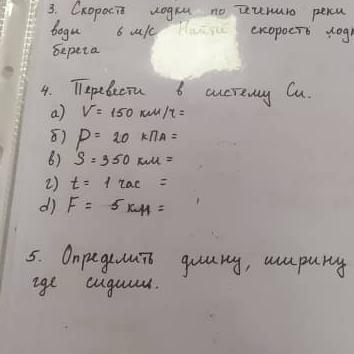 3. Скорость лодки по течению реки
воды 6 м/с. Найти скорость лод
берега
4. Перевести в систему Си.
а) V = 150 км/ч =
б) P = 20 кПа =
в) S = 350 км =
г) t = 1 час =
d) F = 5 кН =
5. Определить длину, ширину
где сидишь.